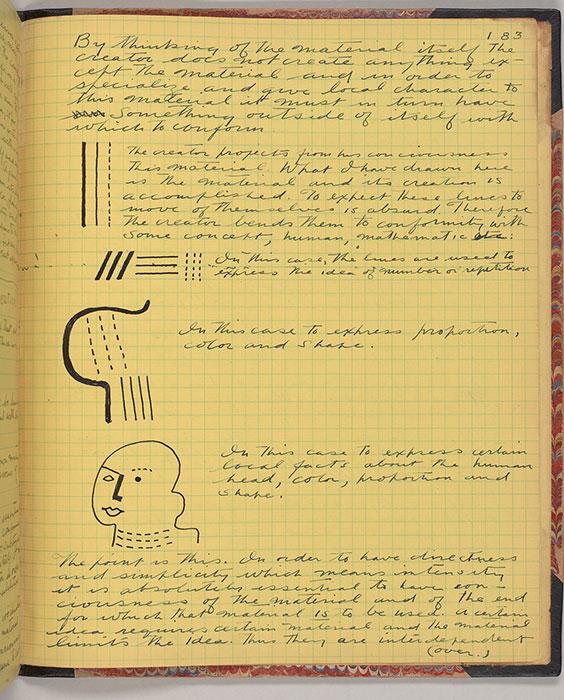 183
By thinking of the material itself The
creator does not create anything ex-
cept the material and in order to
specialize and give local character to
this material it must in turn have
something outside of itself with
which to conform.
The creator projects from his conciousness
This material. What I have drawn here
is the material and its creation is
accomplished. To expect these lines to
move of themselves is absurd. Therefore
the creator bends them to conformity with
some concept, human, mathematic etc:
In this case, the lines are used to
express the idea of number or repetition
In this case to express proportion,
color and shape.
In this case to express certain
local facts about the human
head, color, proportion and
shape.
The point is this. In order to have directness
and simplicity which means intensity
it is absolutely essential to have con-
ciousness of the material and of the end
for which that material is to be used. A certain
idea requires certain material and the material
limits the idea. Thus they are interdependent
(over.)